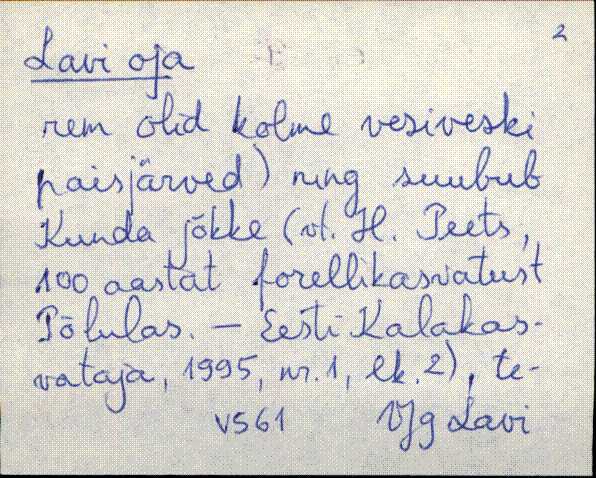 2
Lavi oja
rem olid kolme vesiveski
paisjärved) ning suubub
Kunda jõkke (vt. H. Peets,
100 aastat forellikasvatust
Põlulas. – Eesti Kalakas-
vataja, 1995, nr. 1, lk. 2), te-
VJg Lavi